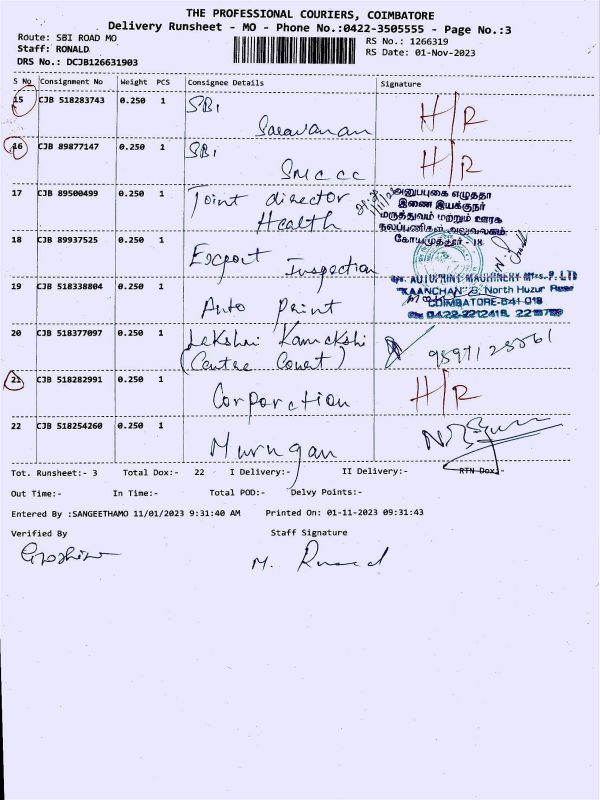 THE PROFESSIONAL COURIERS, COIMBATORE
Delivery Runsheet - MO - Phone No.:0422-3505555 - Page No.:3
Route: SBI ROAD MO
RS No.: 1266319
Staff: RONALD
RS Date: 01-Nov-2023
DRS No.: DCJB126631903
S No Consignment No Weight PCS Consignee Details Signature
15 CJB 518283743 0.250 1 SBI H/R
Saravanan
16 CJB 89877147 0.250 1 SBI H/R
SMCCC
17 CJB 89500499 0.250 1 Joint director
Health
அனுப்புகை எழுத்தர்
இணை இயக்குநர்
மருத்துவம் மற்றும் ஊரக
நலப்பணிகள் அலுவலகம்
கோயமுத்தூர் - 18
18 CJB 89937525 0.250 1 Export
Inspection
19 CJB 518338804 0.250 1 Auto Print
AUTOPRINT MACHINERY Mfrs. P. LTD
"KAANCHAN" 8, North Huzur Road
COIMBATORE-641 018
20 CJB 518377097 0.250 1 Lekshmi Kamakshi
(Centre Court)
21 CJB 518282991 0.250 1 Corporation H/R
22 CJB 518254260 0.250 1 Murugan
Tot. Runsheet:- 3 Total Dox:- 22 I Delivery:- II Delivery:- RTN Dox:-
Out Time:- In Time:- Total POD:- Delvy Points:-
Entered By :SANGEETHAMO 11/01/2023 9:31:40 AM Printed On: 01-11-2023 09:31:43
Verified By Staff Signature